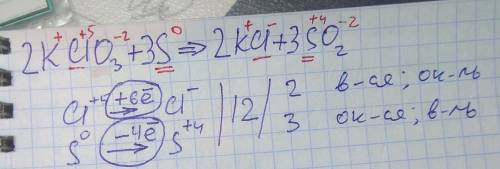 2K⁺Cl⁺⁵O₃⁻² + 3S⁰ ⇒ 2K⁺Cl⁻ + 3S⁺⁴O₂⁻²
Cl⁺⁵ +6ē → Cl⁻ | 12 | 2 в-ся; ок-ль
S⁰ −4ē → S⁺⁴ | 3 ок-ся; в-ль